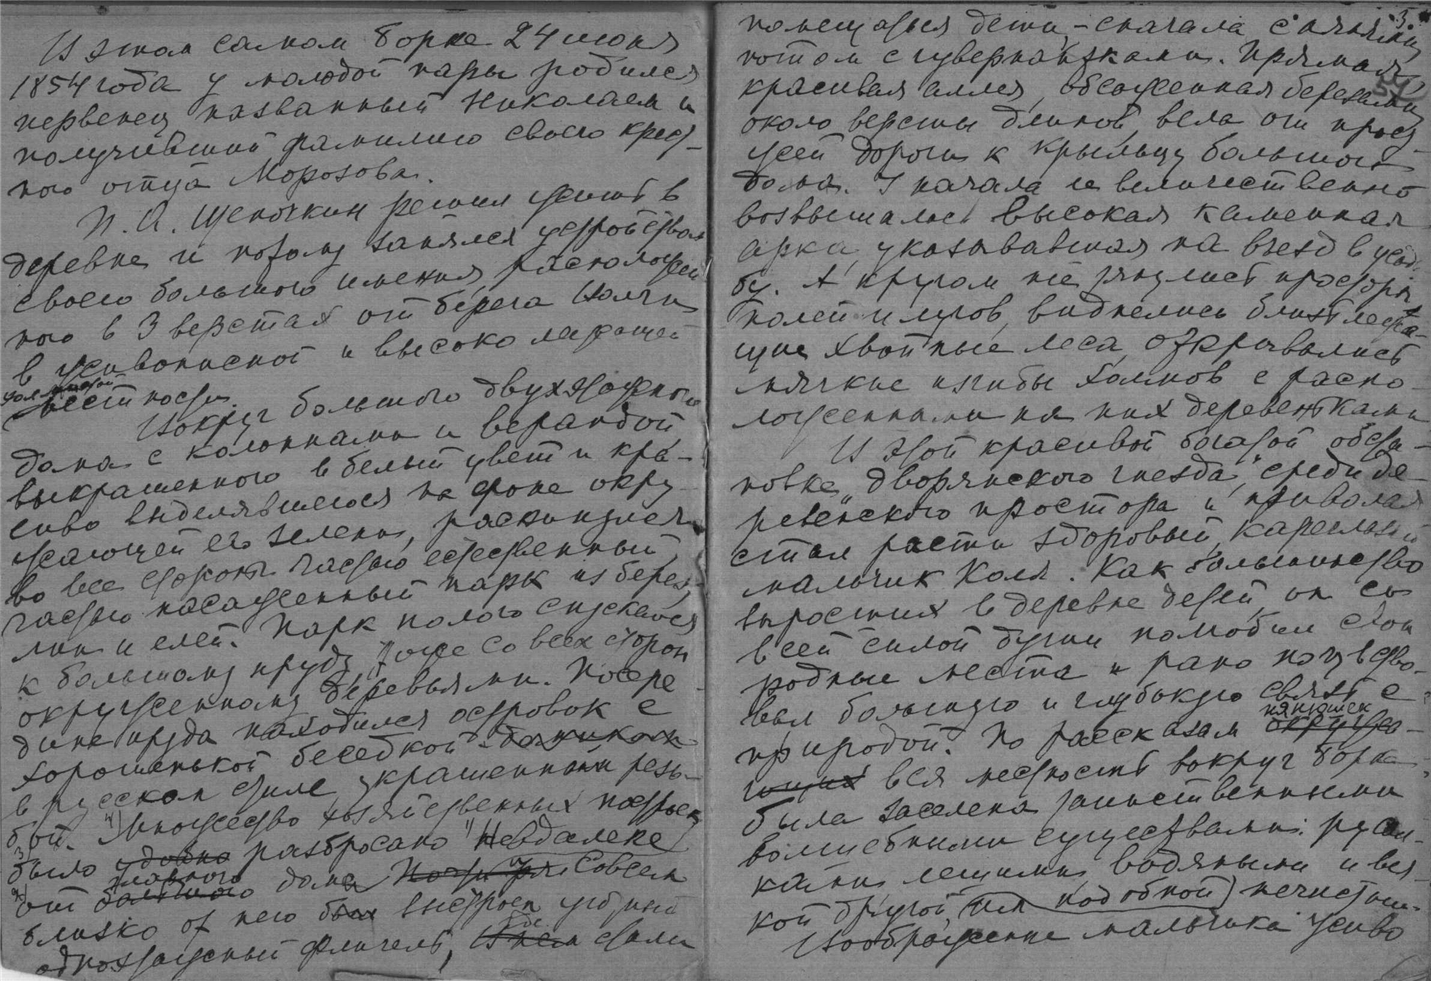 В этом самом Борке 24 июня
1854 года у молодой пары родился
первенец названный Николаем и
получивший фамилию своего крест-
ного отца Морозова.
П. А. Щепочкин решил жить в
деревне и потому занялся устройством
своего большого имения, расположен
ного в 3 верстах от берега Волги
в живописной и высоко лежащей
холмистой
местности.
Вокруг большого двухэтажного
дома с колоннами и верандой
выкрашенного в белый цвет и кра-
сиво выделявшегося на фоне окру-
жающей его зелени, раскинулся
во все стороны частью естественный,
частью насаженный парк из берез,
лип и елей. Парк полого спускался
к большому пруду, тоже со всех сторон
окруженному деревьями. Посре-
дине пруда находился островок с
хорошенькой беседкой домиком
в русском стиле украшенным резь-
бой. Множество хозяйственных построек
было удобно разбросано невдалеке
главного
от большого дома Совсем
близко от него был выстроен уютный
одноэтажный флигель, стали
5.
помещаться дети, – сначала с нянями,
потом с гувернантками. Прямая
54
красивая аллея, обсаженная березами,
около версты длиною, вела от проез-
жей дороги к крыльцу большого
дома. У начала ее величественно
возвышалась высокая каменная
арка, указывавшая на въезд в усадь-
бу. А кругом не тянулись просторы
полей и лугов, виднелись близлежа-
щие хвойные леса, открывались
мягкие изгибы холмов с распо-
ложенными на них деревеньками
В этой красивой богатой обста-
новке „дворянского гнезда“, среди де-
ревенского простора и приволья
стал расти здоровый, коренастый
мальчик Коля. Как большинство
выросших в деревне детей он со
всей силой души полюбил свои
родные места и рано почувство-
вал большую и глубокую связь с
нянюшек
природой. По рассказам окружаю-
щих вся местность вокруг Борка
была заселена таинственными
волшебными существами: русал-
ками, лешими, водяными и вся-
кой другой им подобной нечистью.
Воображение мальчика живо